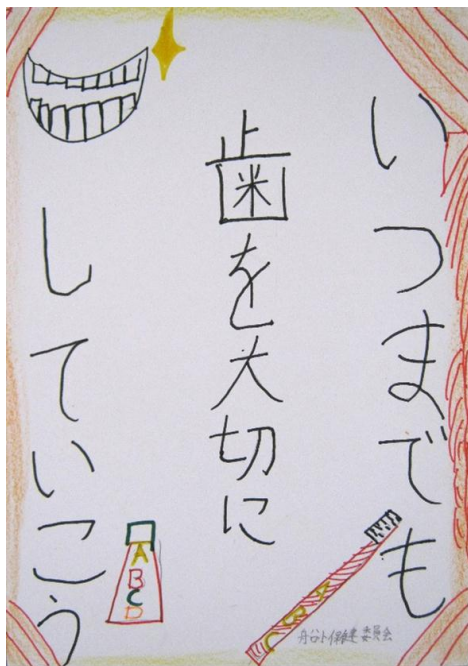 いつまでも
歯を大切に
していこう
A
B
C
D
A
B
C
保健委員会